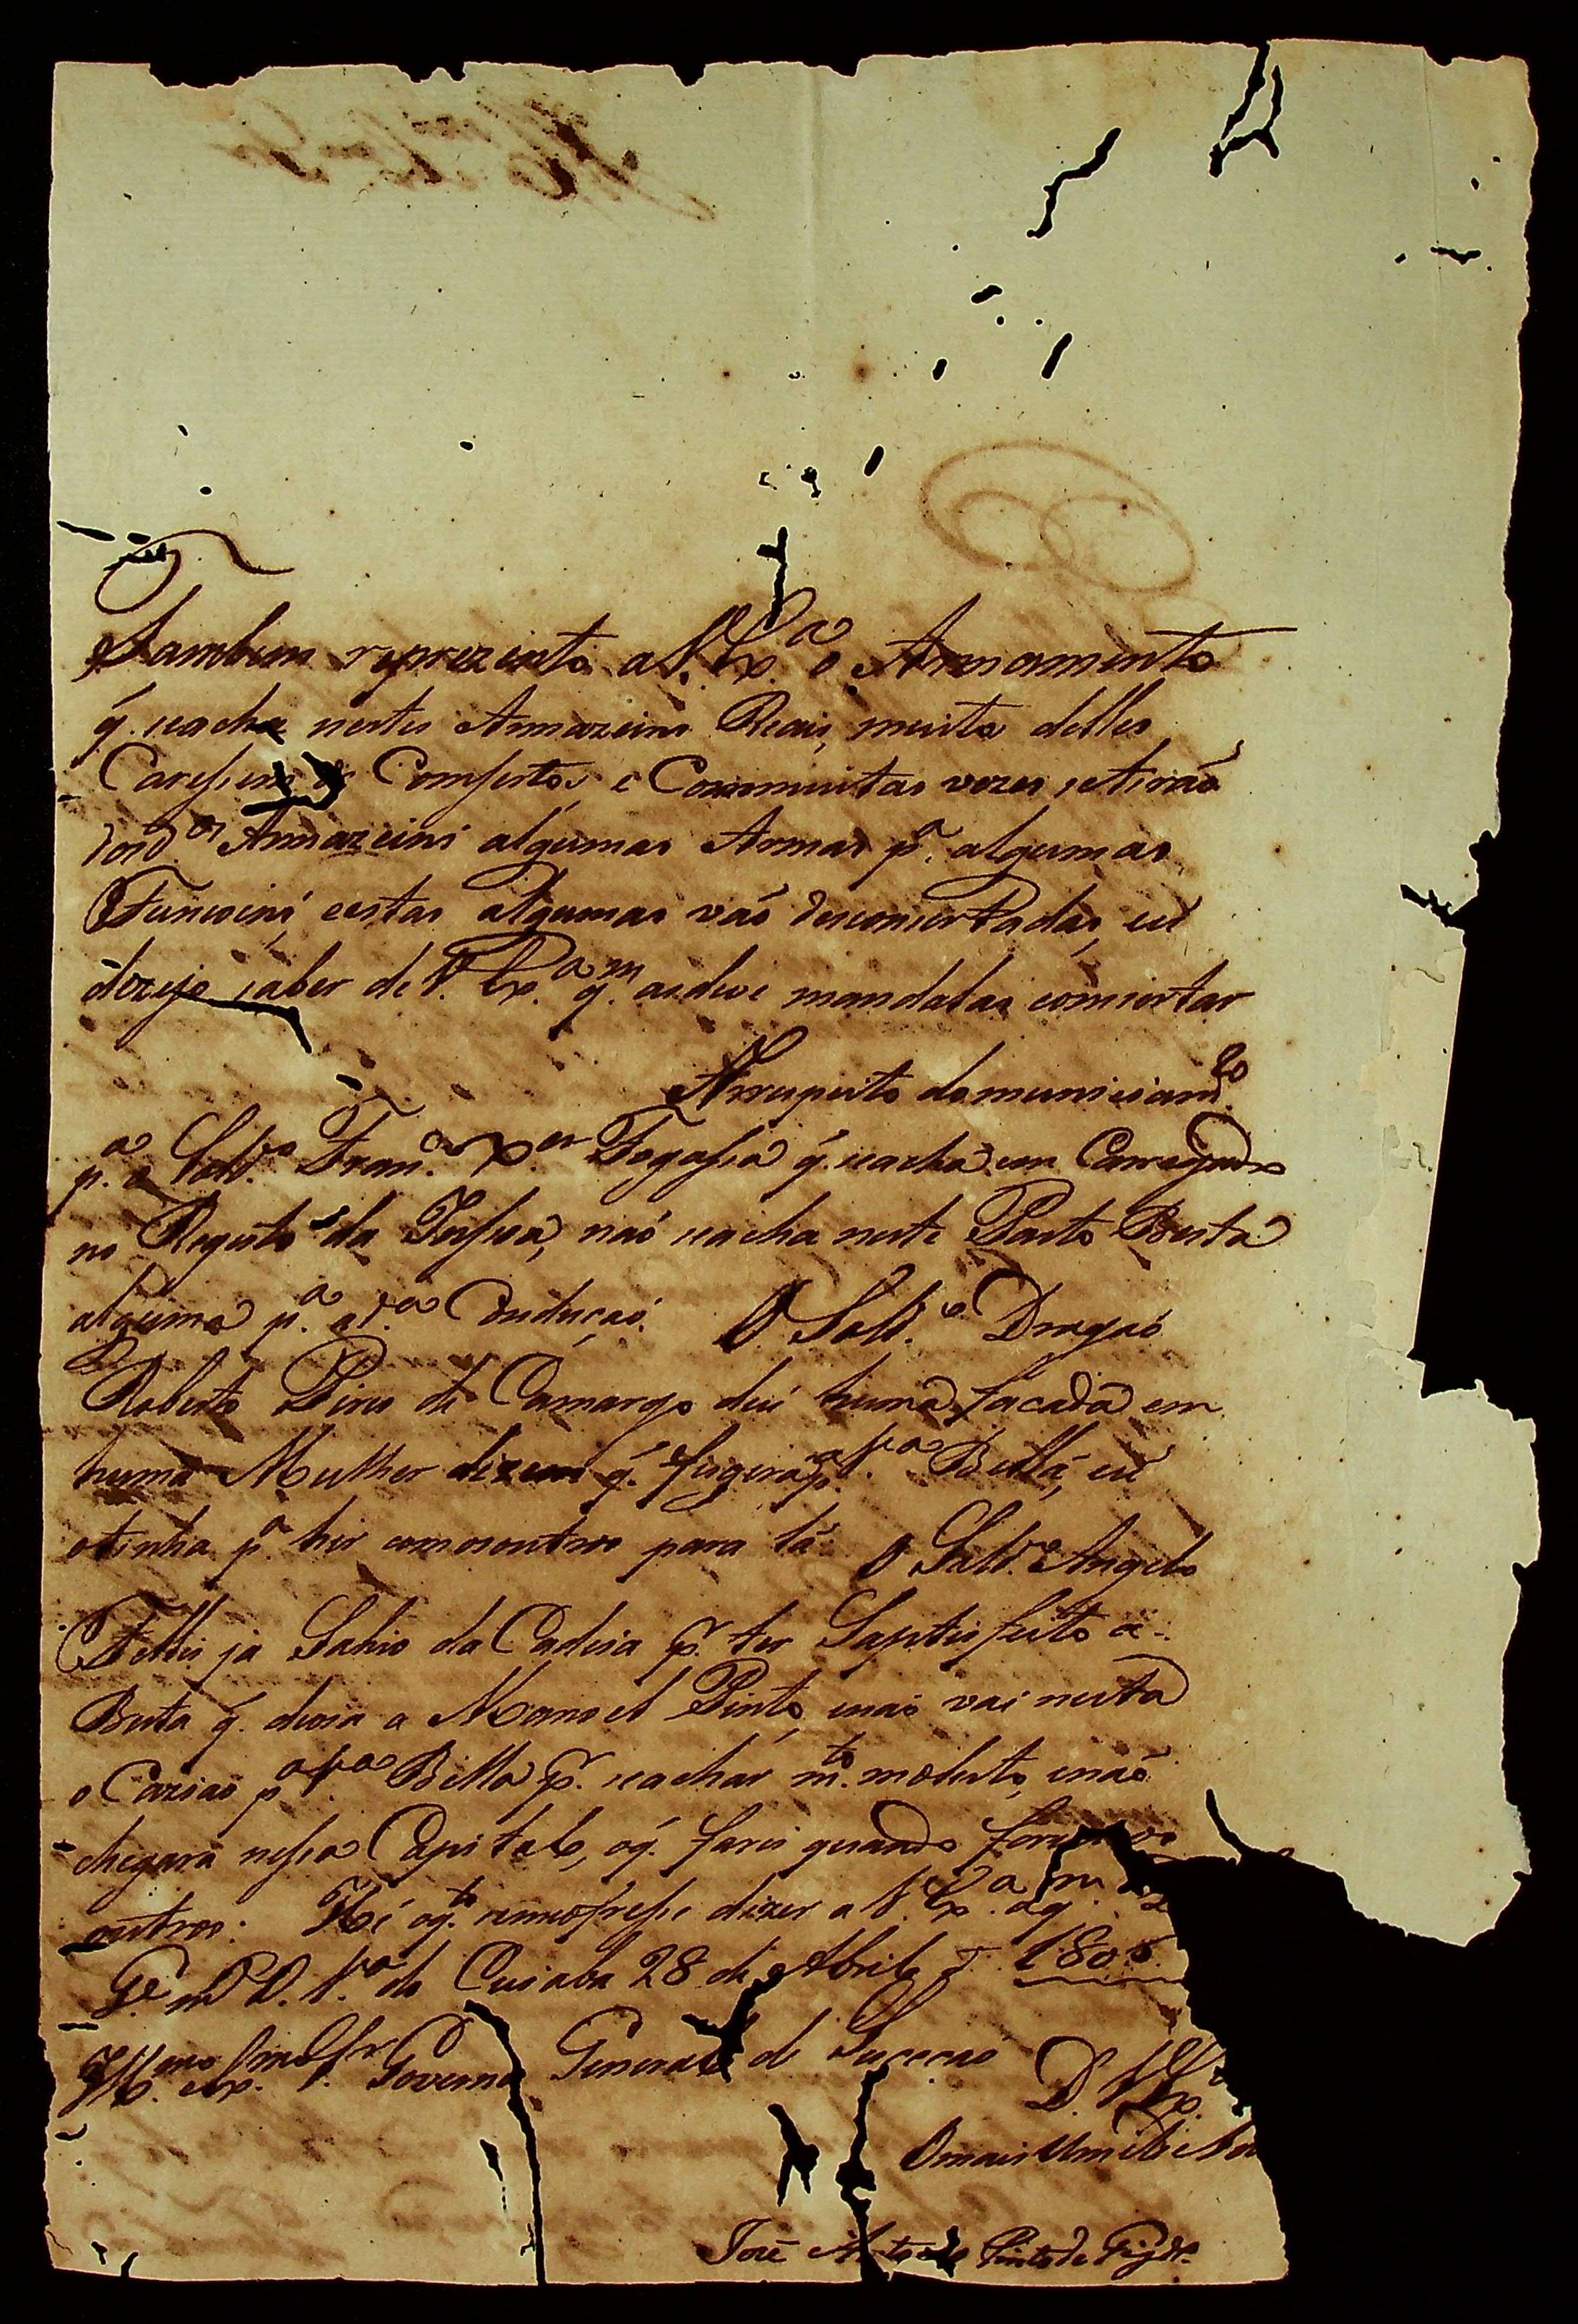 Tambem reprezento a V. Ex.ª o Armamento
q. seacha nestes Armazeins Reais, muito delles
Caressem de Comsertos e Commuitas vezes setirão
dos d.os Armazeins algumas Armas p.ª algumas
Funsoins, eestas algumas vão desconsertadas, eu
dezejo saber de V. Ex.ª q.m asdeve mandalas comsertar
Arrespeito do municiam.to
p.ª o Sold.º Fran.co X.er Fogassa q. seacha em
no Registo da Insua, não seacha neste Porto Besta
alguma p.ª a d.ª Conduçaó. O Sold.º Dragaó
Roberto Pires de Camargo deu huma facada em
huma Mulher dizem q. fugira p.ª V.ª Bella, eu
otinha p.ª hir comosoutros para lá. O Sold.º Angelo
Telles ja Sahio da Cadeia p.r ter Saptisfeito a
Besta q. devia a Manoel Pinto, enaó vai nesta
o p.ª V.ª Bella p.r seachar m.to molesto, enaó
chegara nessa Capital, oq. farei quando
outros. Hé oq.to dizer a V. Ex.ª aq.m
G.e m.s a. V.ª do Cuiaba 28 de Abril d 1805.
Ill.mo e Ex.mo Sn.r Governo General de Sucecaó
D. V. Ex.ª
Omais Umilde
José Antonio Pinto de Figd.º